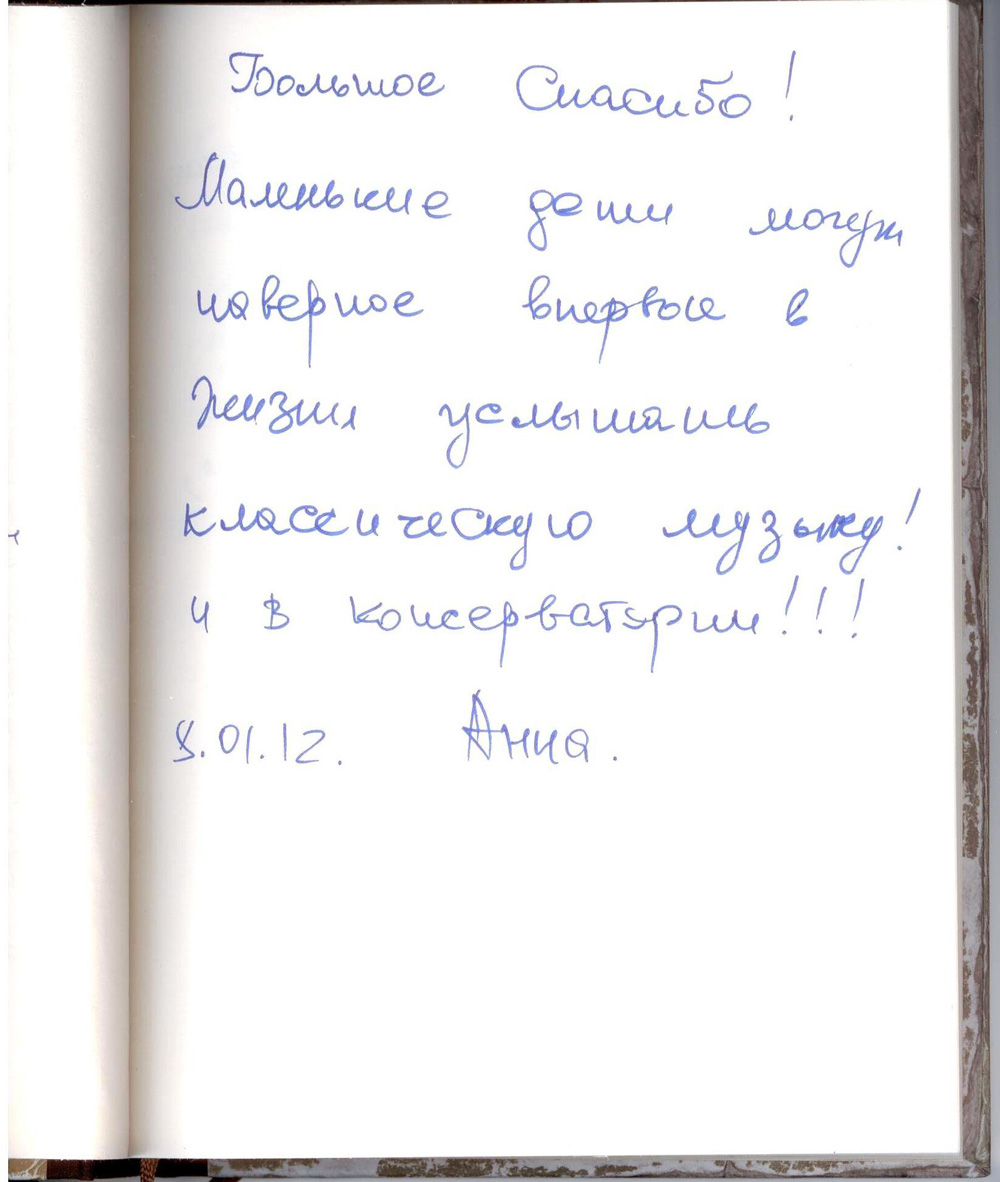 Большое Спасибо!
Маленькие дети могут
наверное впервые в
жизни услышать
классическую музыку!
и в консерватории!!!
8.01.12. Анна.